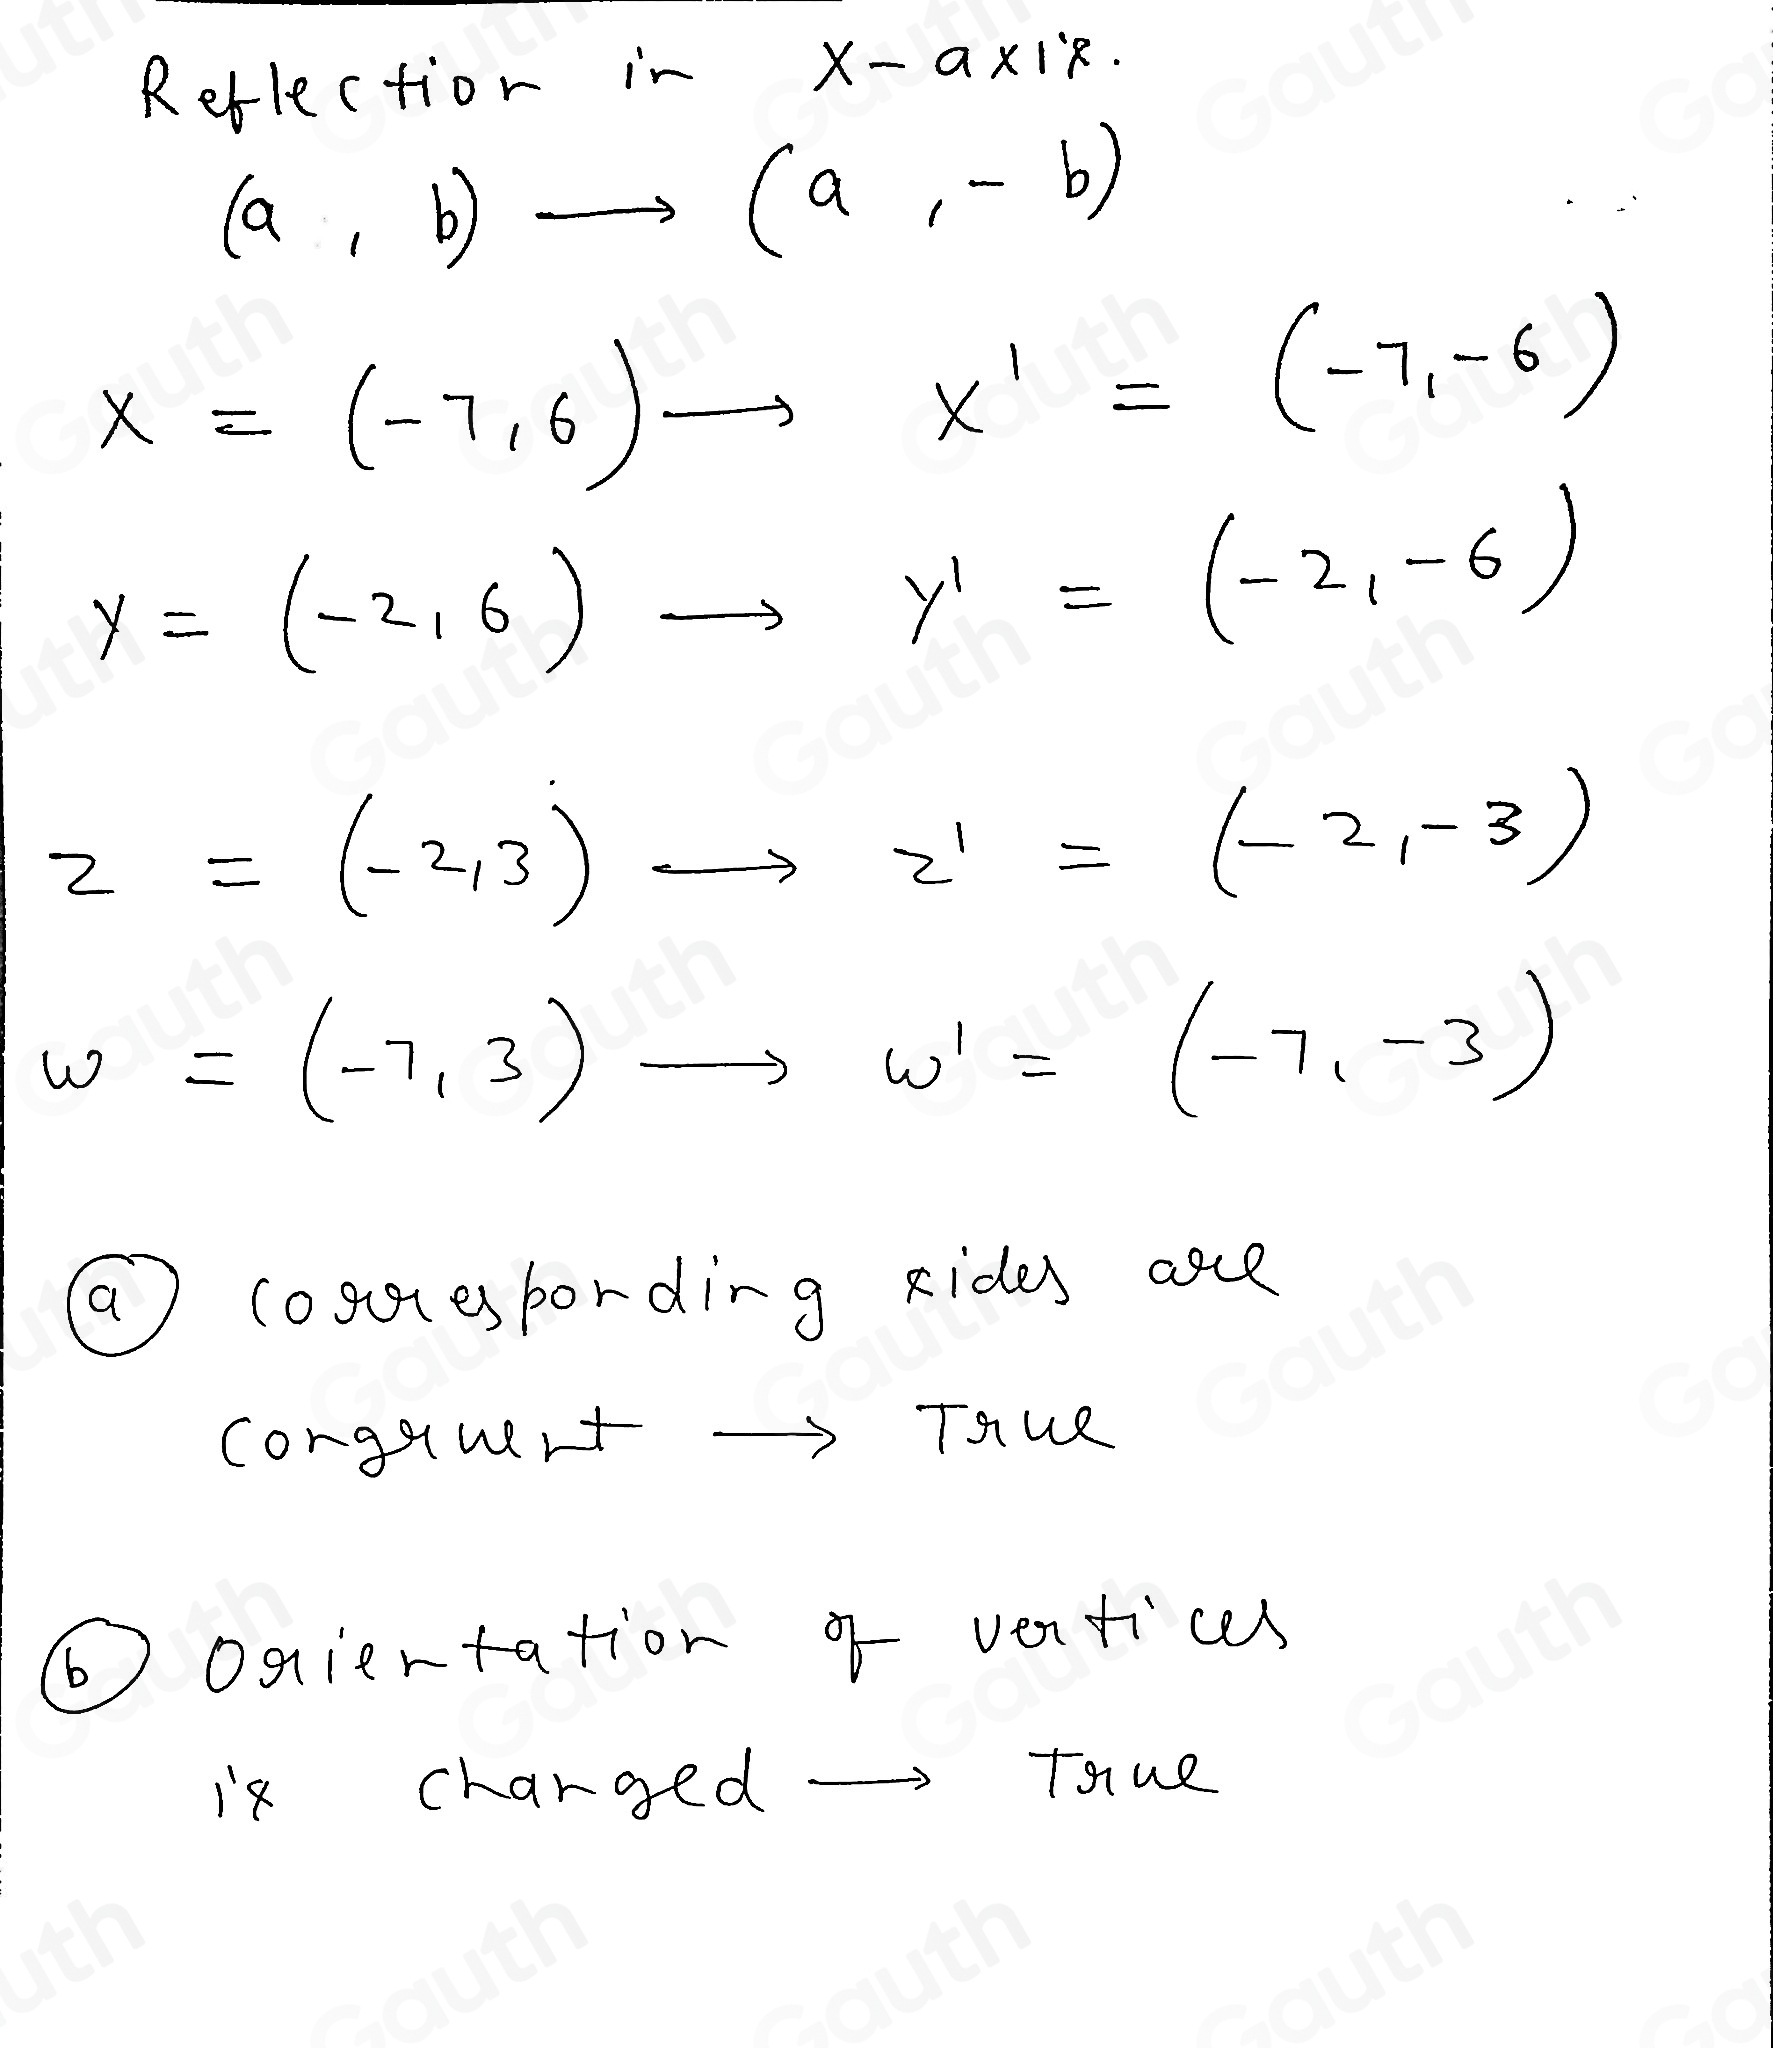 Reflection in x-axis.
(a, b) → (a, -b)
X = (-7, 6) → X' = (-7, -6)
Y = (-2, 6) → Y' = (-2, -6)
Z = (-2, 3) → Z' = (-2, -3)
W = (-7, 3) → W' = (-7, -3)
(a) Corresponding sides are
congruent → True
(b) Orientation of vertices
is changed → True
Gauth